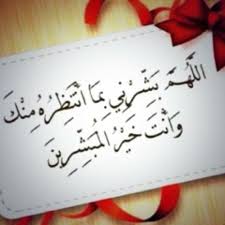 اللَّهُمَّ بَشِّرْنِي بِمَا أَنْتَظِرُهُ مِنْكَ
وَأَنْتَ خَيْرُ الْمُبَشِّرِينَ